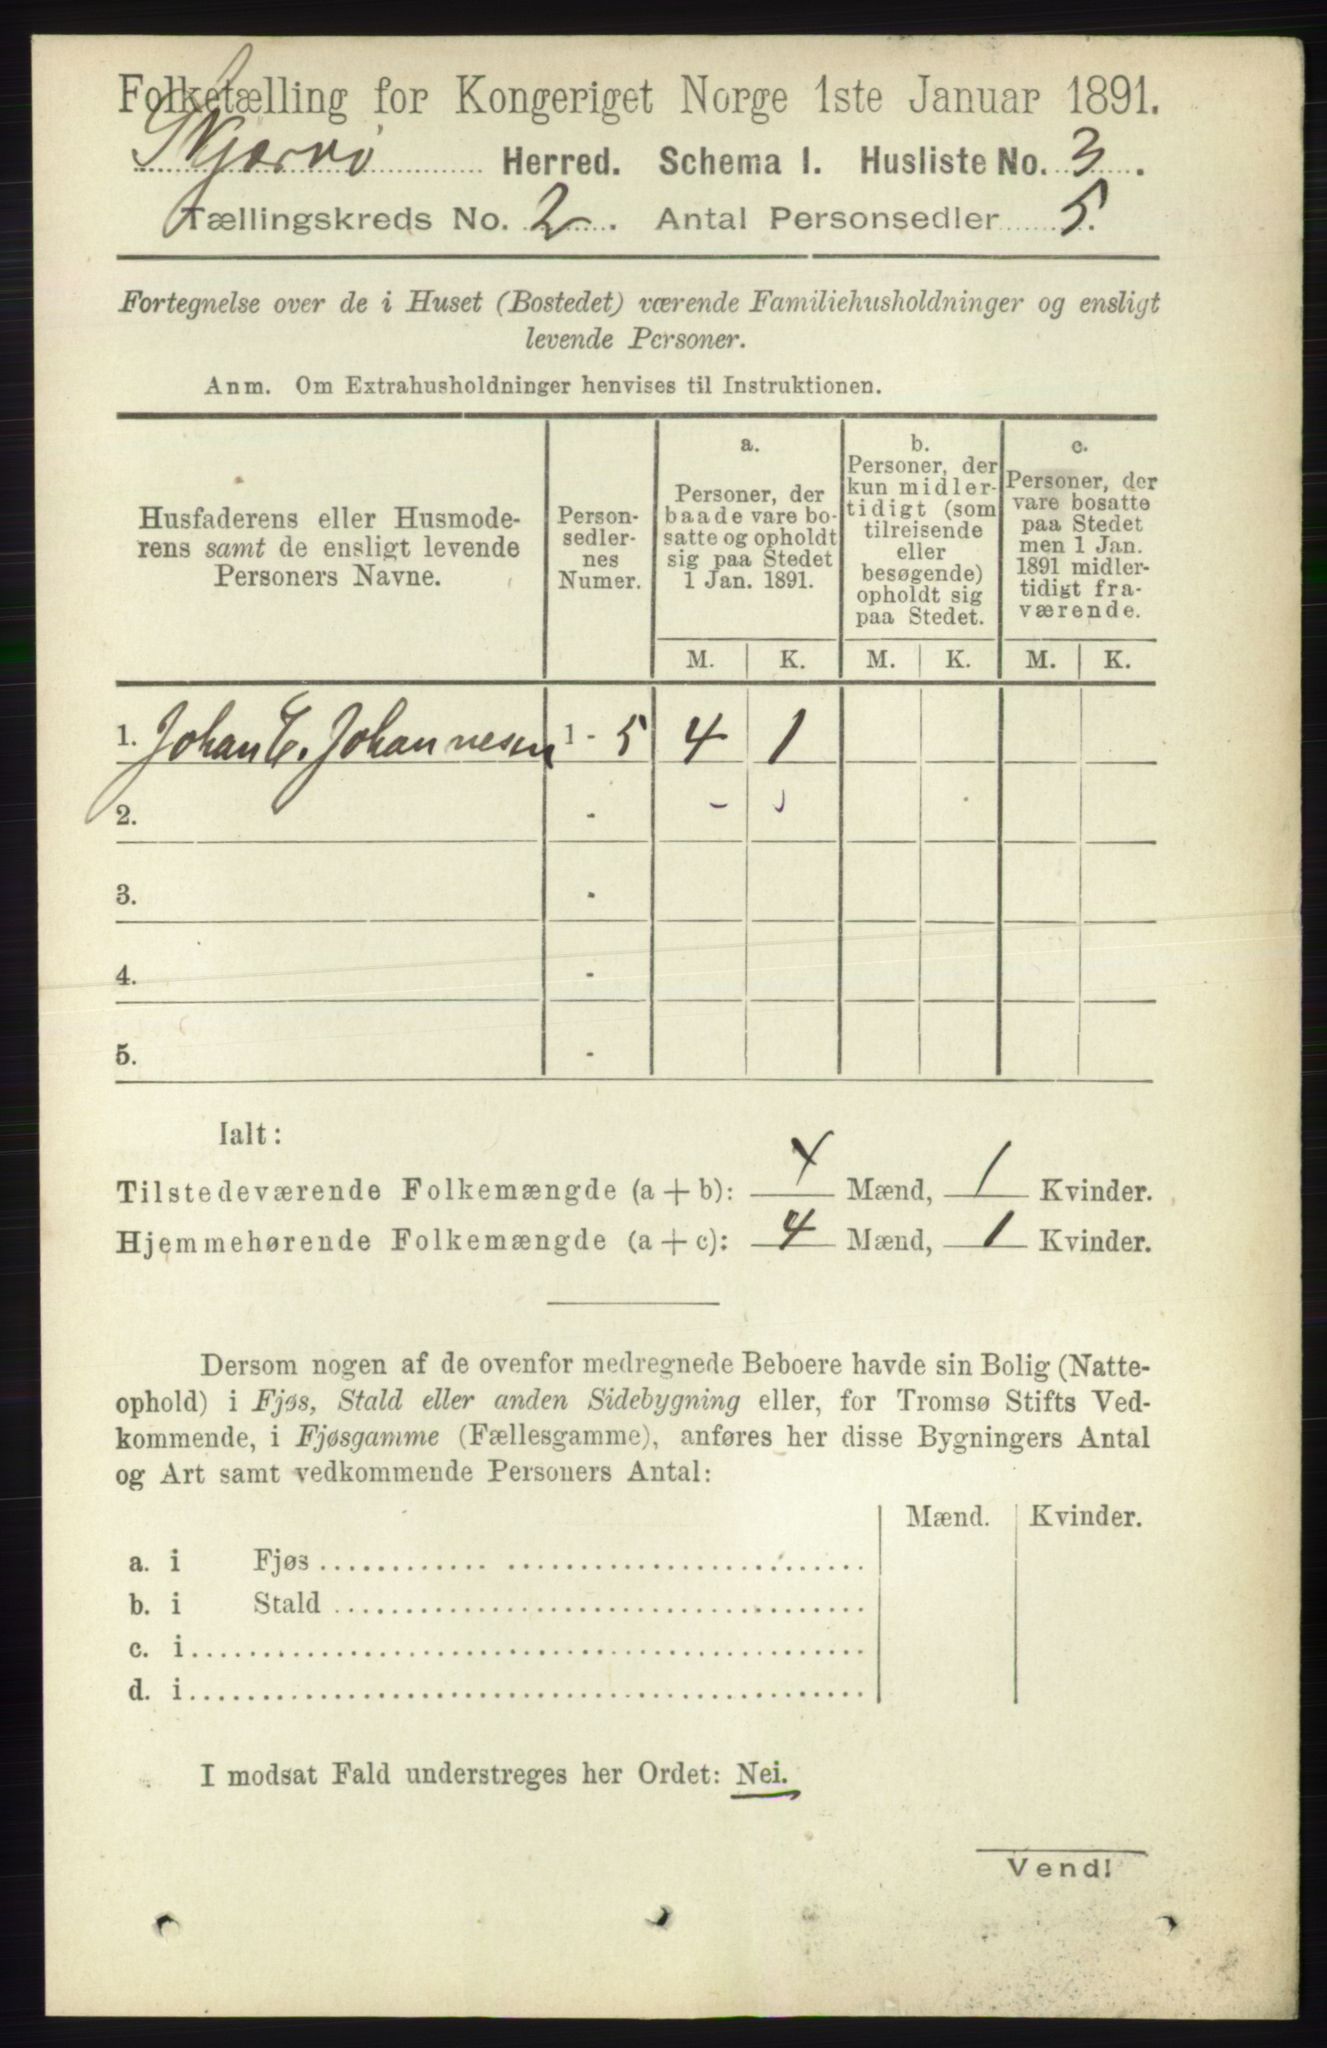 Folketælling for Kongeriget Norge 1ste Januar 1891.
Skjervø Herred. Schema I. Husliste No. 3.
Tællingskreds No. 2. Antal Personsedler 5.
Fortegnelse over de i Huset (Bostedet) værende Familiehusholdninger og ensligt
levende Personer.
Anm. Om Extrahusholdninger henvises til Instruktionen.
Husfaderens eller Husmode-
rens samt de ensligt levende
Personers Navne.
Person-
sedler-
nes
Numer.
a.
Personer, der
baade vare bo-
satte og opholdt
sig paa Stedet
1 Jan. 1891.
b.
Personer, der
kun midler-
tidigt (som
tilreisende
eller
besøgende)
opholdt sig
paa Stedet.
c.
Personer, der
vare bosatte
paa Stedet
men 1 Jan.
1891 midler-
tidigt fra-
værende.
M. K. M. K. M. K.
1. Johan E. Johannesen 1 - 5 4 1
2. -
3. -
4. -
5. -
Ialt:
Tilstedeværende Folkemængde (a + b): 4 Mænd, 1 Kvinder.
Hjemmehørende Folkemængde (a + c): 4 Mænd, 1 Kvinder.
Dersom nogen af de ovenfor medregnede Beboere havde sin Bolig (Natte-
ophold) i Fjøs, Stald eller anden Sidebygning eller, for Tromsø Stifts Ved-
kommende, i Fjøsgamme (Fællesgamme), anføres her disse Bygningers Antal
og Art samt vedkommende Personers Antal:
Mænd. Kvinder.
a. i Fjøs
b. i Stald
c. i
d. i
I modsat Fald understreges her Ordet: Nei.
Vend!